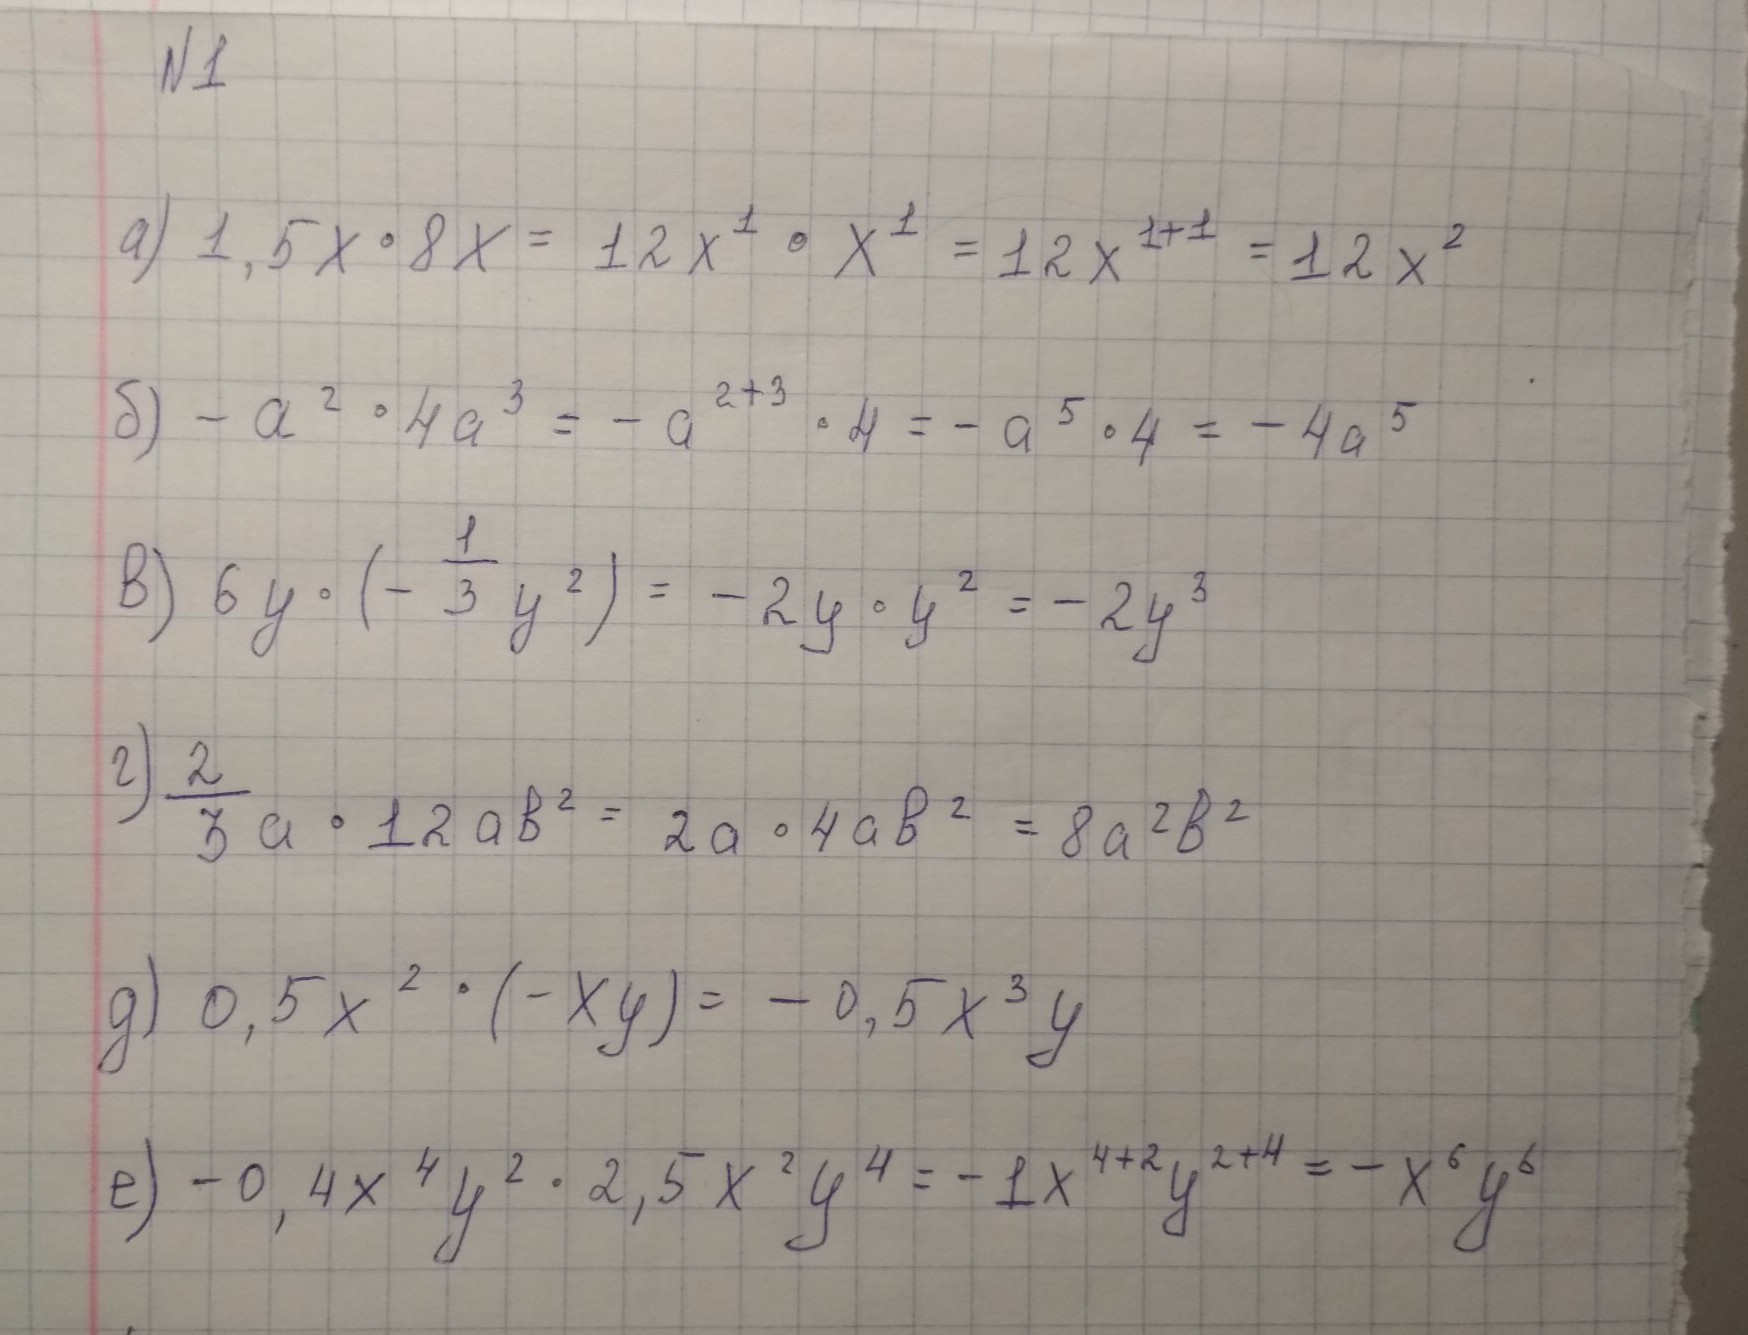 N1
а) 1,5x · 8x = 12x¹ · x¹ = 12x¹⁺¹ = 12x²
б) - a² · 4a³ = - a²⁺³ · 4 = - a⁵ · 4 = - 4a⁵
в) 6y · (- 1/3 y²) = - 2y · y² = - 2y³
г) 2/3 a · 12ab² = 2a · 4ab² = 8a²b²
д) 0,5x² · (- xy) = - 0,5x³y
е) - 0,4x⁴y² · 2,5x²y⁴ = - 1x⁴⁺²y²⁺⁴ = - x⁶y⁶